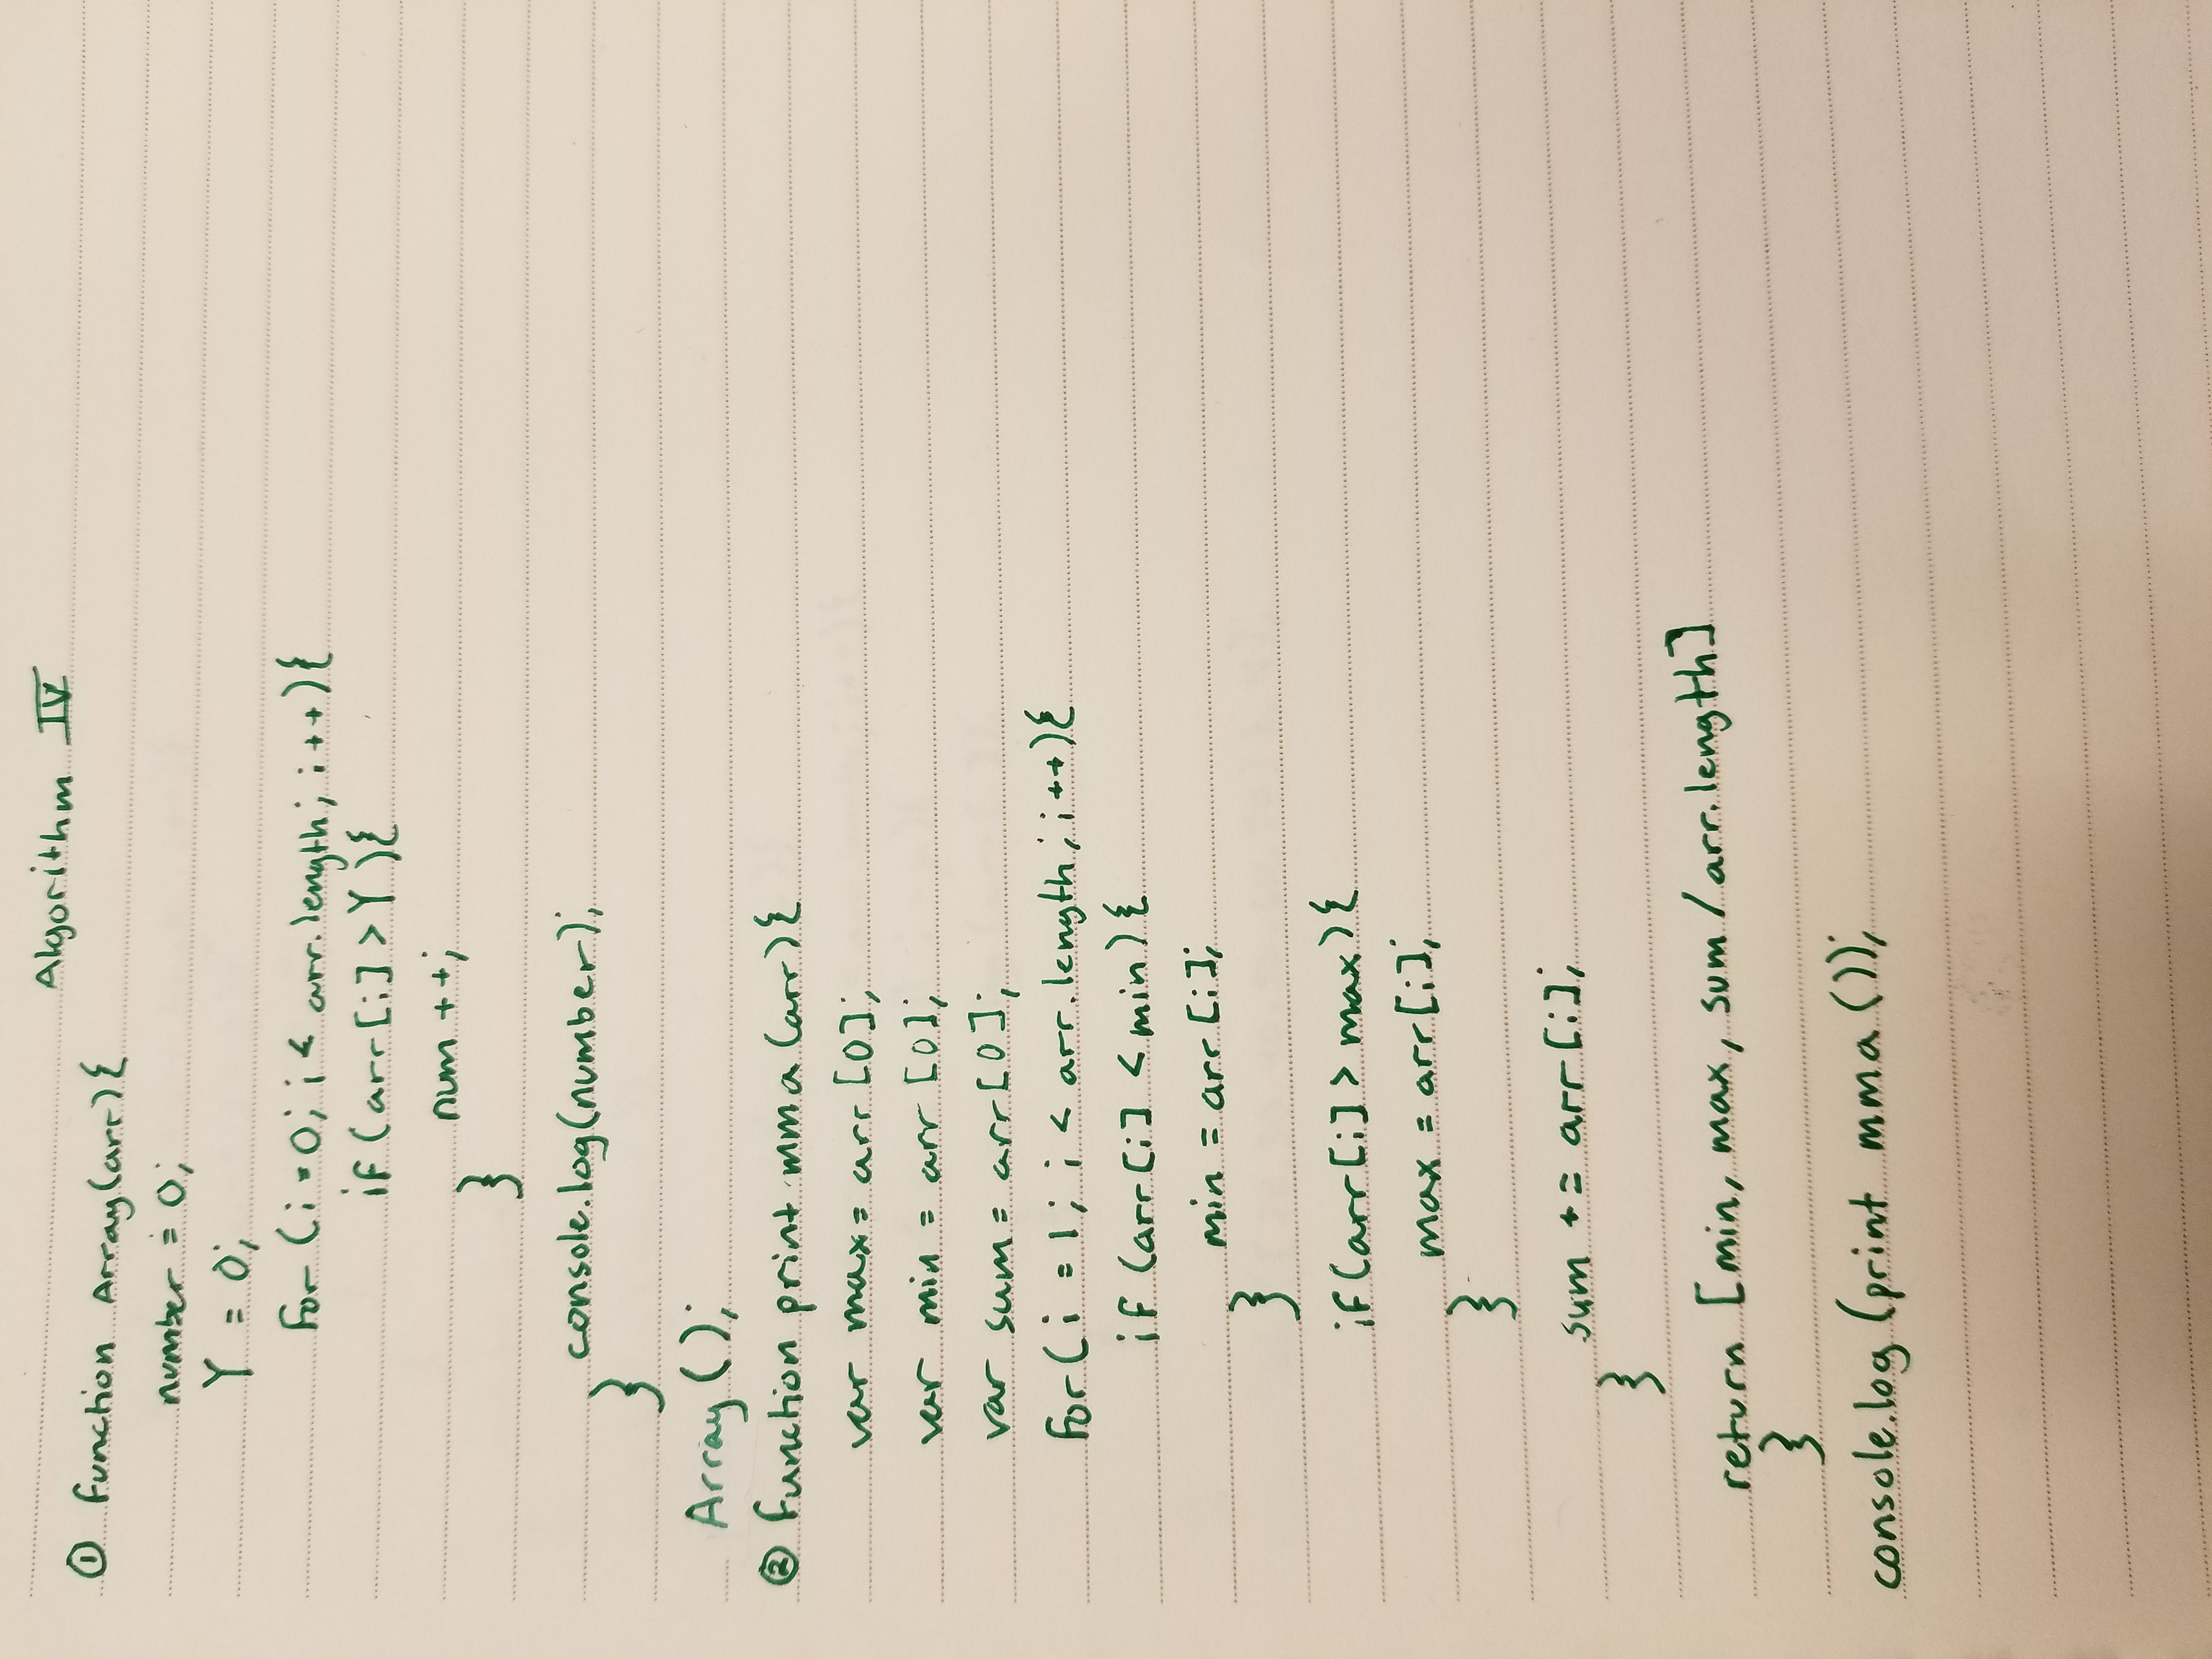 Algorithm IV
① function Array(arr){
number = 0;
Y = 0;
for (i = 0; i < arr.length; i++){
if (arr[i] > Y ){
num ++;
}
console.log(number);
}
Array ();
② function print mma (arr){
var max = arr [0];
var min = arr [0];
var sum = arr [0];
for ( i = 1; i < arr.length; i++){
if (arr[i] < min){
min = arr [i];
}
if (arr[i] > max){
max = arr[i];
}
sum += arr [i];
}
return [min, max, sum / arr.length]
}
console.log (print mma ());